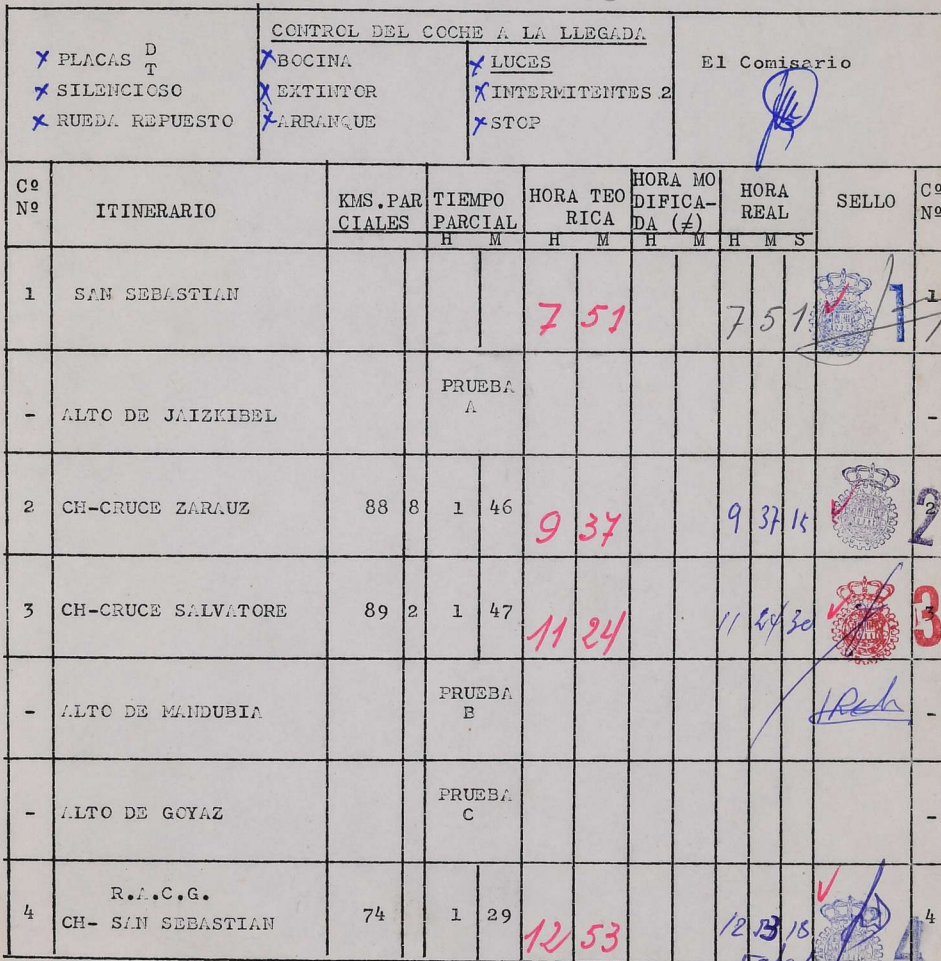 CONTROL DEL COCHE A LA LLEGADA
x PLACAS D T
x SILENCIOSO
x RUEDA REPUESTO
x BOCINA
x EXTINTOR
x ARRANQUE
x LUCES
x INTERMITENTES 2
x STOP
El Comisario
Cº Nº ITINERARIO KMS.PAR CIALES TIEMPO PARCIAL HORA TEO RICA HORA MO DIFICA- DA (≠) HORA REAL SELLO Cº Nº
H M H M H M H M S
1 SAN SEBASTIAN 7 51 7 51 1 1
- ALTO DE JAIZKIBEL PRUEBA A -
2 CH-CRUCE ZARAUZ 88 8 1 46 9 37 9 37 15 2 2
3 CH-CRUCE SALVATORE 89 2 1 47 11 24 11 24 30 3 3
- ALTO DE MANDUBIA PRUEBA B -
- ALTO DE GOYAZ PRUEBA C -
R.A.C.G.
4 CH- SAN SEBASTIAN 74 1 29 12 53 12 53 18 4 4